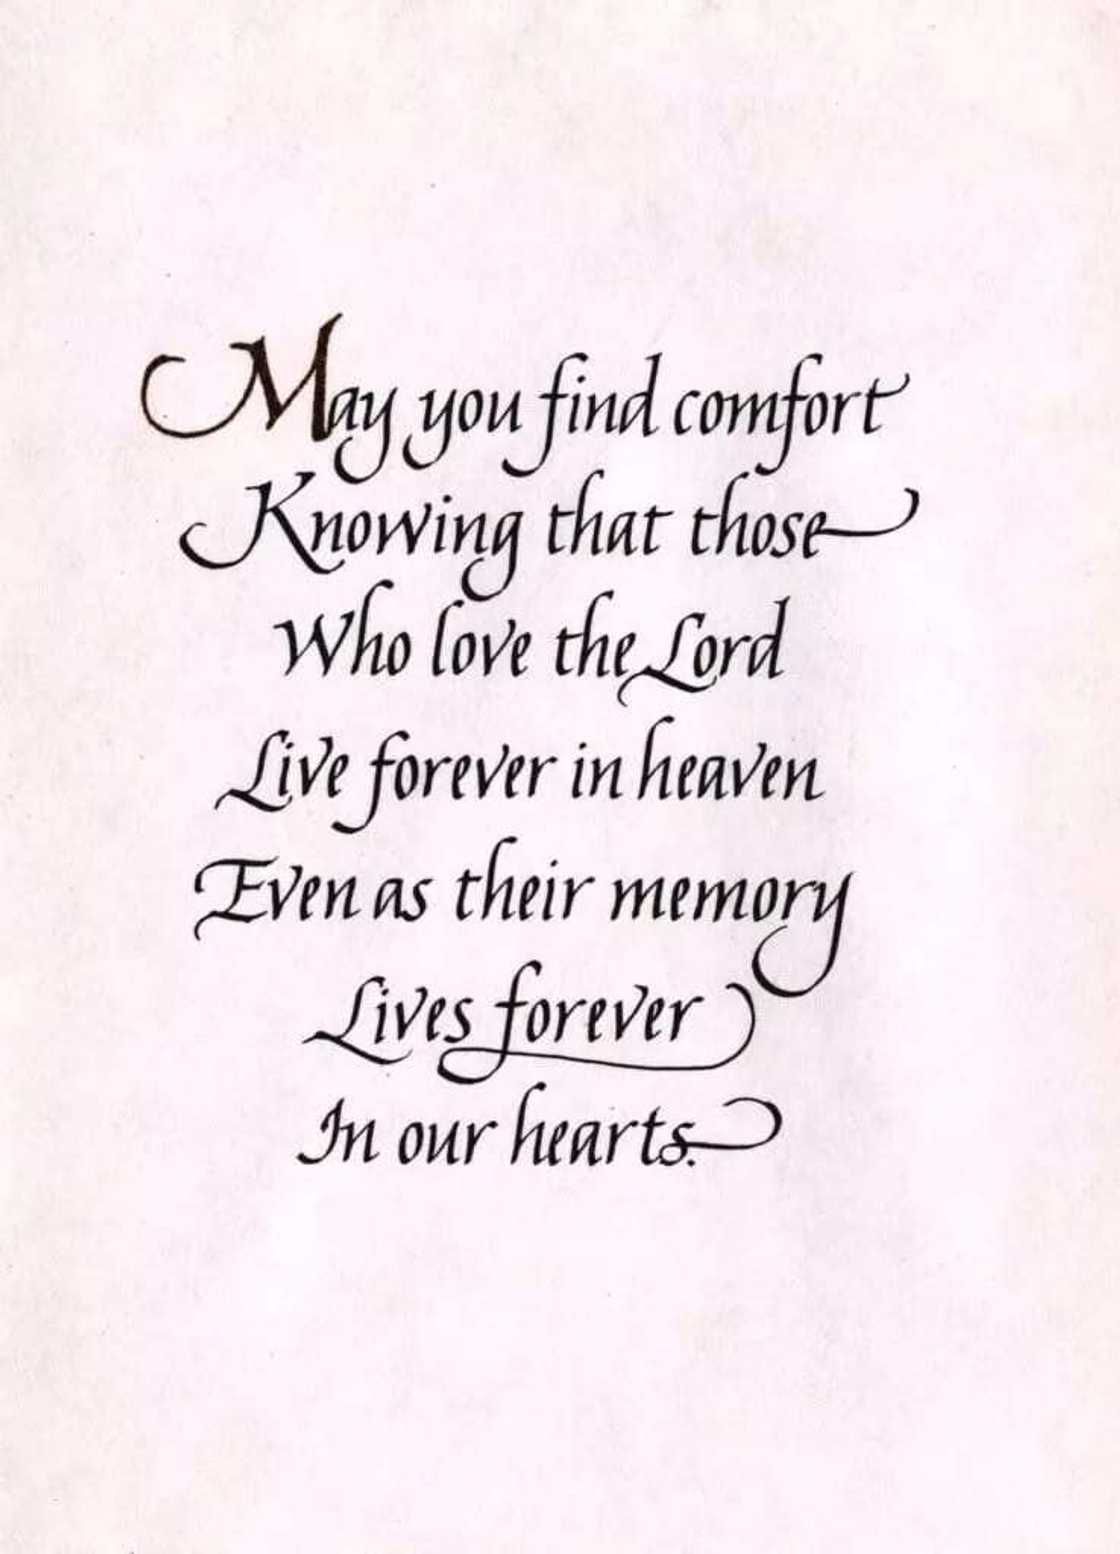 May you find comfort
Knowing that those
Who love the Lord
Live forever in heaven
Even as their memory
Lives forever
In our hearts.